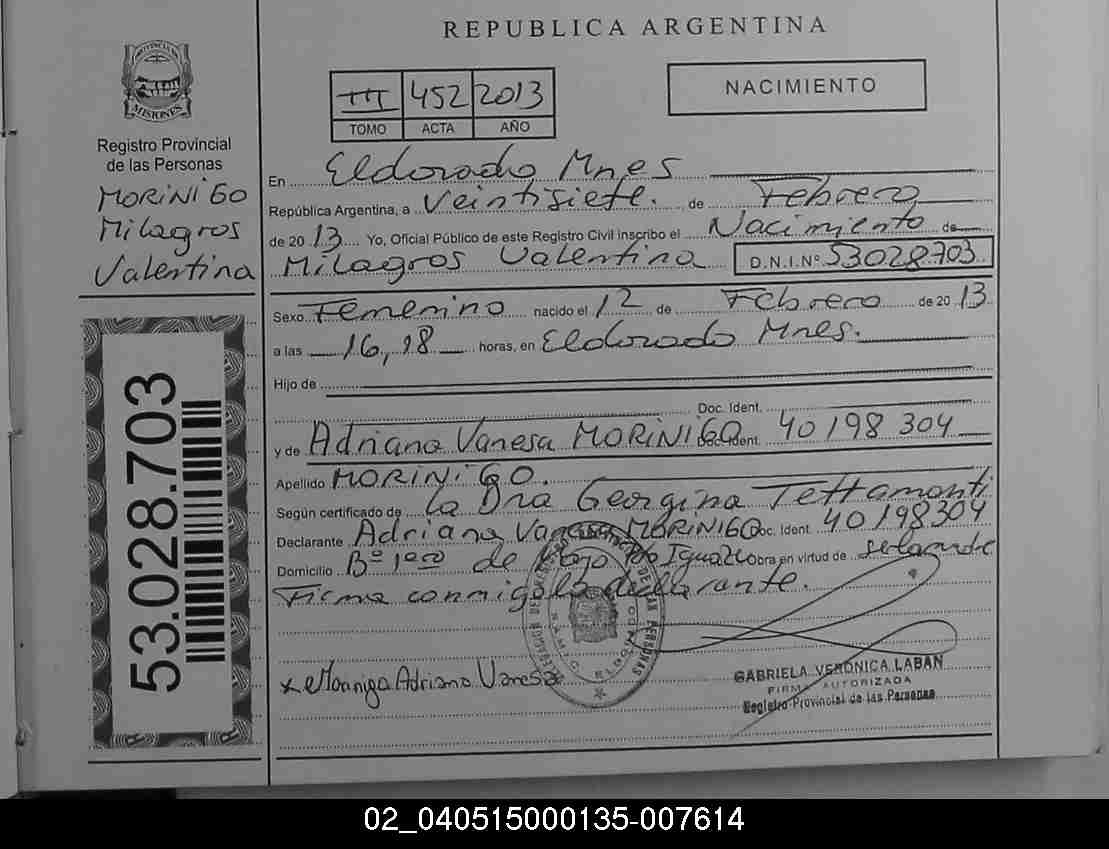 REPUBLICA ARGENTINA
PROVINCIA DE
MISIONES
Registro Provincial
de las Personas
MORINIGO
Milagros
Valentina
53.028.703
III 452 2013
TOMO ACTA AÑO
NACIMIENTO
En Eldorado, Mnes
República Argentina, a Veintisiete. de Febrero
de 2013 Yo, Oficial Público de este Registro Civil inscribo el Nacimiento de
Milagros Valentina D.N.I.Nº 53028703
Sexo Femenino nacido el 12 de Febrero de 2013
a las 16,18 horas, en Eldorado Mnes.
Hijo de
Doc. Ident.
y de Adriana Vanesa MORINIGO Doc. Ident. 40198304
Apellido MORINIGO.
Según certificado de la Dra Georgina Tettamanti
Declarante Adriana Vanesa MORINIGO Doc. Ident. 40198304
Domicilio Bº 1ero de Mayo Pto Iguazu Obra en virtud de
Firma conmigo la declarante.
x Morinigo Adriana Vanesa
GABRIELA VERONICA LABAN
FIRMA AUTORIZADA
Registro Provincial de las Personas
02_040515000135-007614